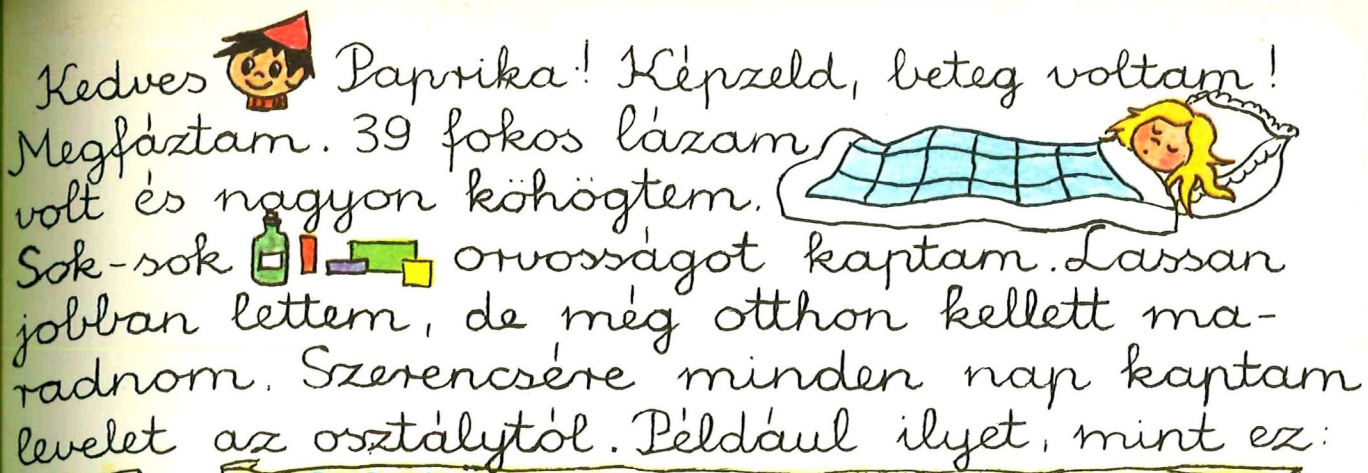 Kedves Paprika! Képzeld, beteg voltam!
Megfáztam. 39 fokos lázam
volt és nagyon köhögtem.
Sok-sok orvosságot kaptam. Lassan
jobban lettem, de még otthon kellett ma-
radnom. Szerencsére minden nap kaptam
levelet az osztálytól. Például ilyet, mint ez: